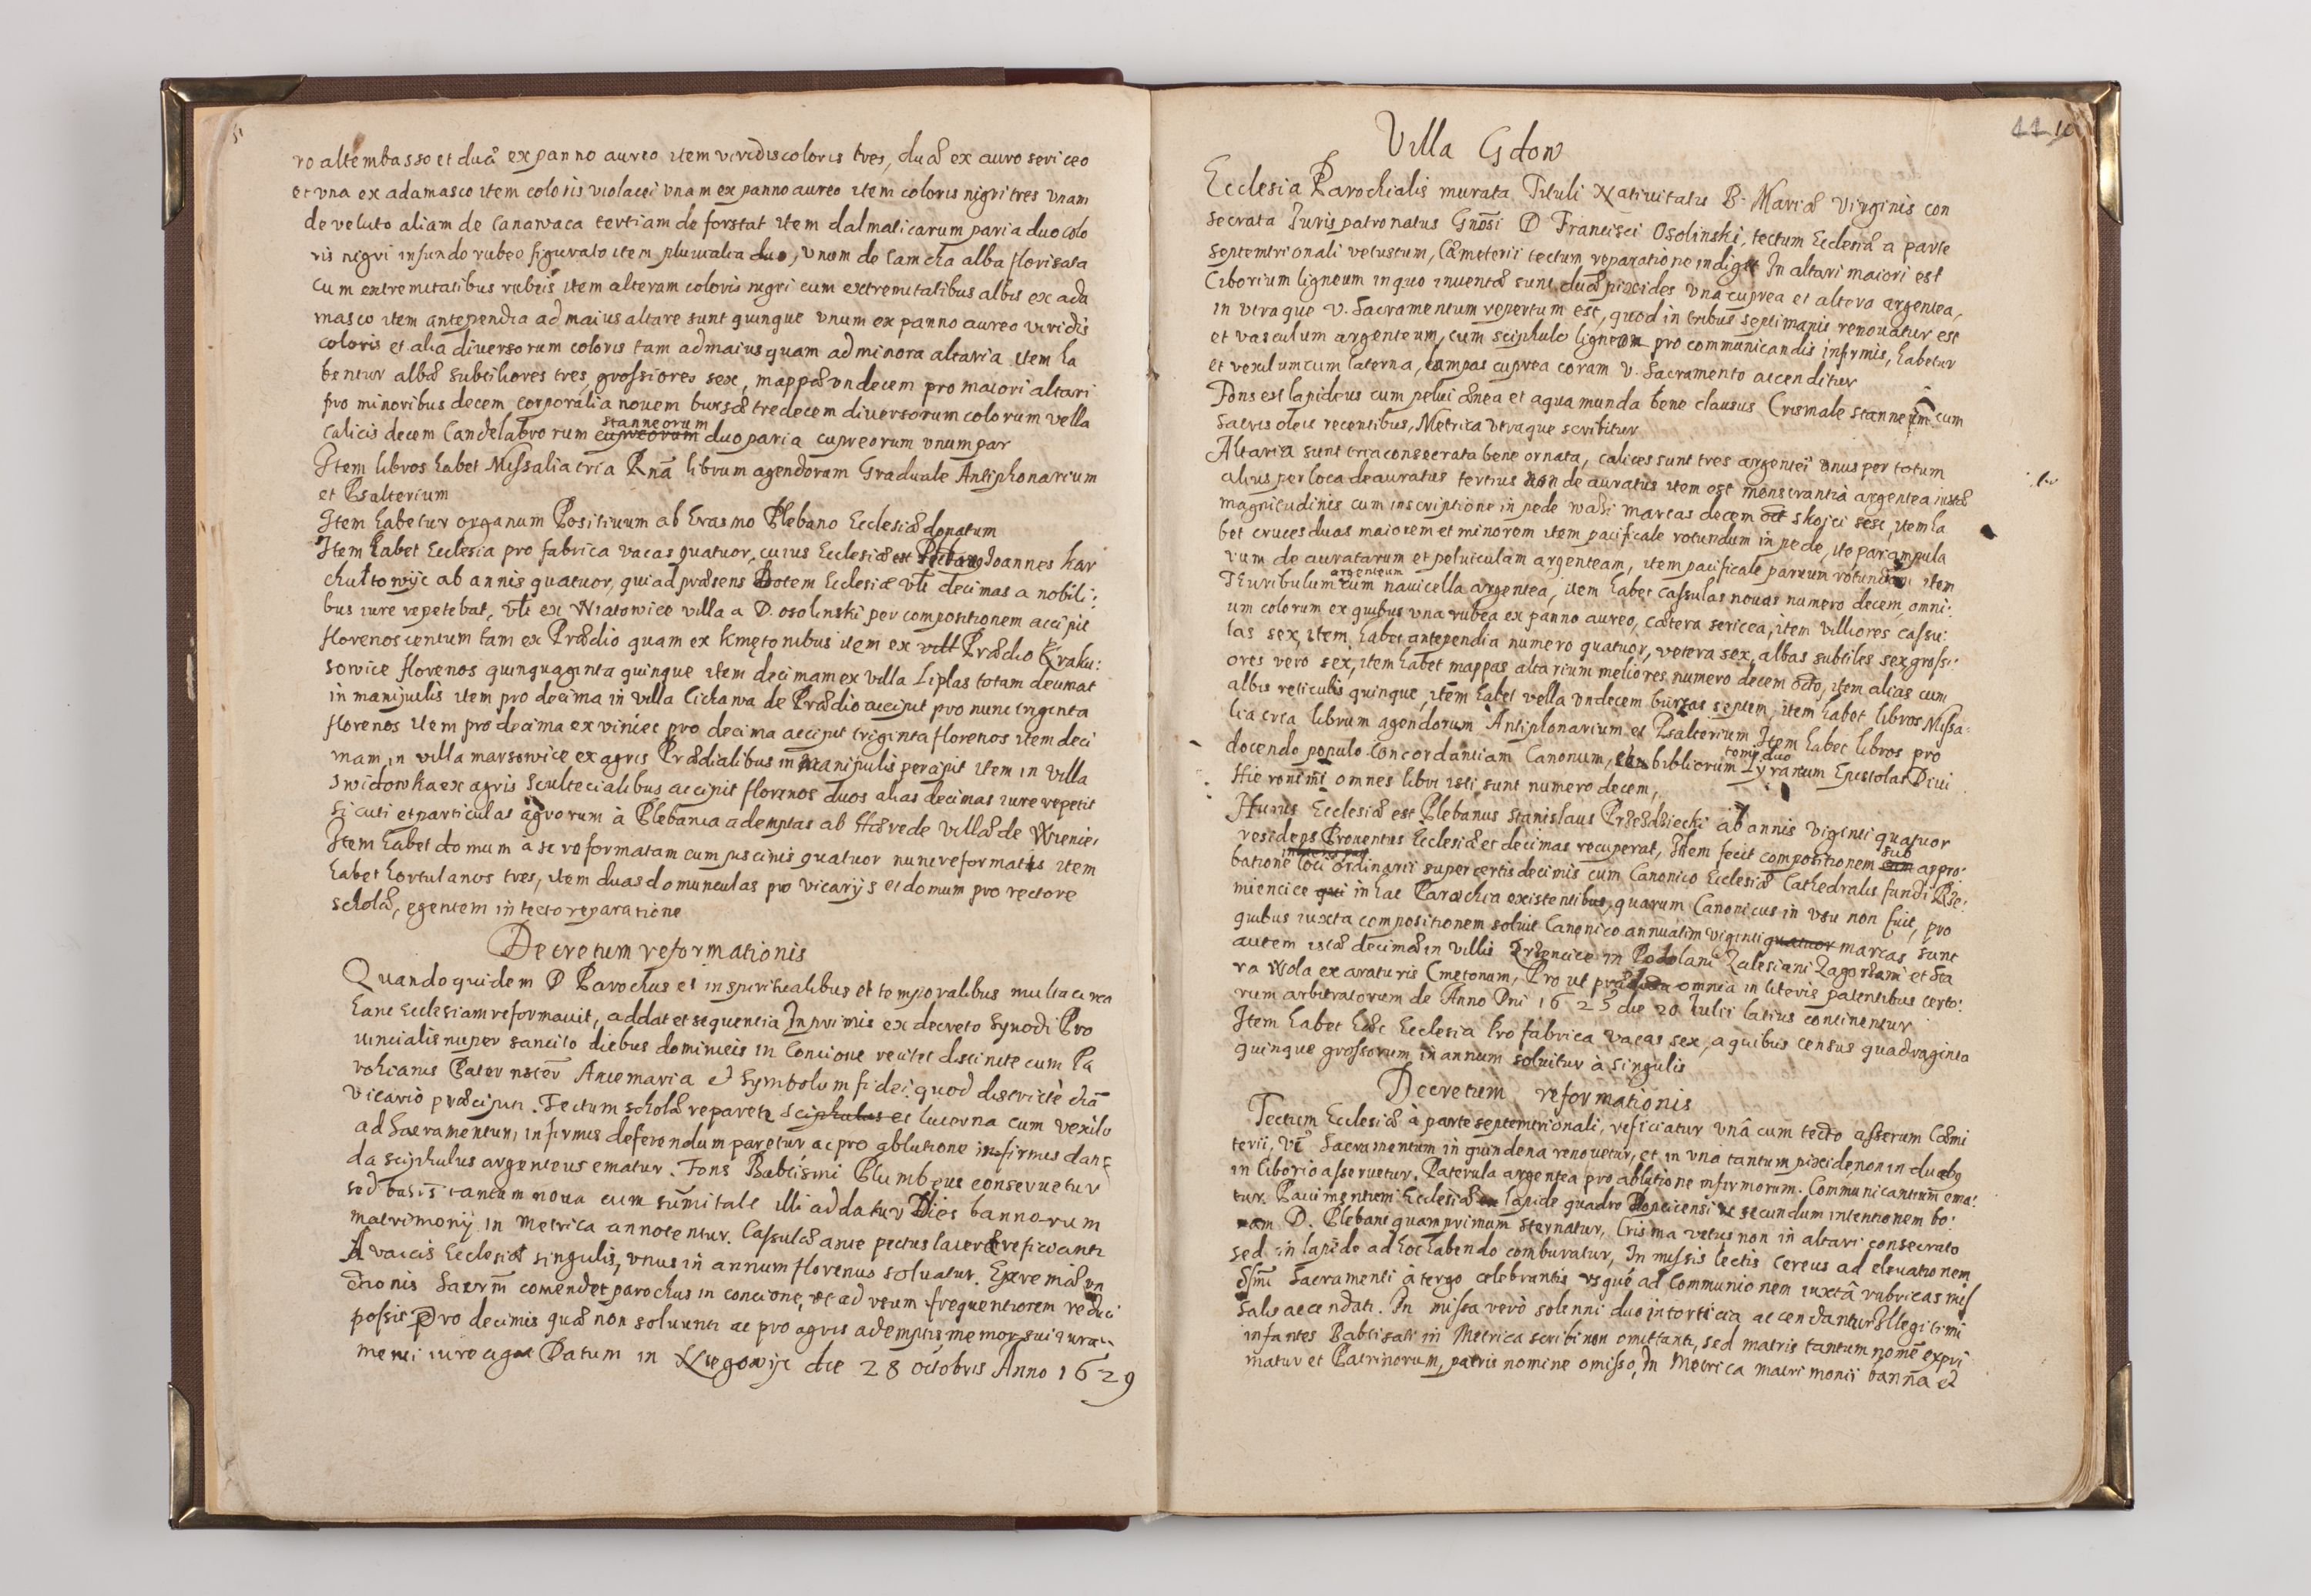 ro altembasso et duæ ex panno aureo item viridis coloris tres, duæ ex auro sericeo
et vna ex adamasco item coloris violacei vnam ex panno aureo item coloris nigri tres vnam
de veluto aliam de Canawaca tertiam de forstat item dalmaticarum paria duo colo
ris nigri in fundo rubeo figurato item pluuialia duo, vnum de Camcha alba florisata
cum extremitatibus rubeis item alteram coloris nigri cum extremitatibus albis ex ada
masco item antependia ad maius altare sunt quinque vnum ex panno aureo viridis
coloris et alia diuersorum coloris tam ad maius quam ad minora altaria item ha
bentur albæ subtiliores tres, grossiores sex, mappæ vndecem pro maiori altari
pro minoribus decem corporalia nouem bursæ tredecem diuersorum colorum vella
calicis decem Candelabrorum cupreorum stanneorum duo paria cupreorum vnum par
Item libros habet Missalia tria Rnã librum agendorum Graduale Antiphonarium
et Psalterium
Item habetur organum Positiuum ab Erasmo Plebano Ecclesiæ donatum
Item habet Ecclesia pro fabrica vacas quatuor, cuius Ecclesiæ est Ioannes Kar
chutowijc ab annis quatuor, qui ad præsens Dotem Ecclesiæ vti decimas a nobili:
bus iure repetebat, vti ex Wiatowice villa a D. osolinski per compositionem accipit
florenos centum tam ex Prædio quam ex Kmętonibus item ex vill Prædio Kraku:
sowice florenos quinquaginta quinque item decimam ex villa Liplas totam
in manipulis item pro decima in villa Cichawa de Prædio accipit pro nunc triginta
florenos item pro decima ex viniec pro decima accipit triginta florenos item deci
mam in villa marsowice ex agris Prædialibus in manipulis percipit item in villa
swidowka ex agris Scultecialibus accipit florenos duos alias decimas iure repetit
sicuti et particulas agrorum à Plebania ademptas ab Hærede villæ de
Item habet domum à se reformatam cum piscinis quatuor nunc reformatis item
habet hortulanos tres, item duas domunculas pro vicarijs et domum pro rectore
scholæ, egentem in tecto reparatione
Decretum reformationis
Quandoquidem D Parochus et in spiritualibus et temporalibus multa circa
hanc Ecclesiam reformauit, addat et sequentia Inprimis ex decreto Synodi Pro
uincialis nuper sancito diebus dominicis in Concione recitet distincte cum Pa
rohianis Pater noster Auemaria et Symbolum fidei quod districtè etiã
vicario præcipiti. Tectum scholæ reparetr sciphulus et lucerna cum vexilo
ad Sacramentum infirmis deferendum paretur ac pro ablutione infirmis dan=
da sciphulus argenteus ematur. Fons Babtismi Plumbeus conseruetur
sed basis tantum noua cum sumitate illi addatur Dies bannorum
matrimonij in Metrica annotentur. Casulæ ante pectus laceræ reficianti
A vaccis Ecclesiæ singulis, vnus in annum florenus soluatur. Extremæ vn
ctionis Sacrm comendet parochus in concione, vt ad vsum frequentiorem reduci
possit Pro decimis quæ non soluunti ac pro agris ademptis, memor sui iura
menti iure agat Datum in Niegowijc die 28 octobris Anno 1629
11
Villa Gdow
Ecclesia Parochialis murata Tituli Natiuitatis B: Mariæ Virginis con
secrata Iuris patronatus Gnõsi D Francisci Osolinski, tectum Ecclesiæ a parte
septemtrionali vetustum, Cæmeterii tectum reparatione indiget In altari maiori est
Ciborium ligneum in quo inuentæ sunt duæ pixides vna cuprea et altera argentea,
in vtraque V. Sacramentum repertum est, quod in tribus septimanis renouatur est
et vasculum argenteum, cum sciphulo ligneo pro communicandis infirmis, habetur
et vexilum cum laterna, lampas cuprea coram V. Sacramento accenditur
Fons est lapideus cum pelui ænea et aqua munda bene clausus Crismale stanneum cum
sacris oleis recentibus, Metrica vtraque scribitur
Altaria sunt tria consecrata bene ornata, calices sunt tres argentei vnus per totum
alius per loca deauratus tertius non deauratus item est monstrantia argentea iustæ
magnitudinis cum inscriptione in pede wazi marcas decem oct skojci sex, item ha
bet cruces duas maiorem et minorem item pacificale rotundum in pede, ite par ampula
rum deauratarum et peluiculam argenteam, item pacificale paruum rotundum item
Thuribulum argenteum cum nauicella argentea, item habet casulas nouas numero decem omni:
um colorum ex quibus vna rubea ex panno aureo, cætera sericea, item villiores cassu:
las sex, item habet antependia numero quatuor, vetera sex, albas subtiles sex grossi:
ores vero sex, item habet mappas altarium meliores numero decem octo, item alias cum
albis reticulis quinque, item habet vella vndecem bursas septem, item habet libros Missa:
lia tria librum agendorum Antiphonarium et Psalterium Item habet libros pro
docendo populo Concordantiam Canonum, bibliorum tomi duo Lyranum Epistolas Diui
Hieronimi omnes libri isti sunt numero decem,
Huius Ecclesiæ est Plebanus Stanislaus Przedziecki ab annis viginti quatuor
residens Prouentus Ecclesiæ et decimas recuperat, Item fecit compositionem cum sub appro:
batione loci ordinarii super certis decimis cum Canonico Ecclesiæ Cathedralis fundi Rze:
miencice qui in hac Parochia existentibus, quarum Canonicus in vsu non fuit, pro
quibus iuxta compositionem soluit Canonico annuatim viginti quatuor marcas sunt
autem istæ decimæ in villis in Podolani Zalesiani Zagorzani et Sta
ra Wola ex araturis Cmetonum, Pro ut omnia in literis patentibus certo:
rum arbitratorum de Anno Dni 1625 die 20 Iulii latius continentur
Item habet hæc Ecclesia pro fabrica vacas sex, a quibus census quadraginta
quinque grossorum in annum soluitur à singulis
Decretum reformationis
Tectum Ecclesiæ à parte septemtrionali, reficiatur vnâ cum tecto asserum Cæmi
terii, Vẽ Sacramentum in quindena renouetur, et in vna tantum pixide, non in duabus
in Ciborio asseruetur. Paterula argentea pro ablutione infirmorum. Communicantium ema:
tur. Pauimentum Ecclesiæ lapide quadro secundum intentionem bo:
nam D. Plebani quamprimum sternatur, Crisma vetus non in altari consecrato
sed in lapide ad hoc habendo comburatur, In missis lectis Cereus ad eleuationem
Ssmi Sacramenti à tergo celebrantis vsque ad Communionem iuxtâ rubricas mis
salis accendati. In missa verò solenni duo intorticia accendantur Illegitimi
infantes Babtisati in Metrica scribi non omittanti, sed matris tantum nome expri
matur et Patrinorum, patris nomine omisso, In Metrica matrimonii banna et